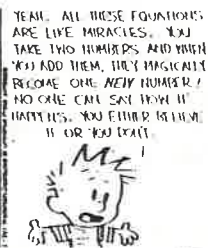 YEAH. ALL THESE EQUATIONS
ARE LIKE MIRACLES. YOU
TAKE TWO NUMBERS AND WHEN
YOU ADD THEM, THEY MAGICALLY
BECOME ONE NEW NUMBER!
NO ONE CAN SAY HOW IT
HAPPENS. YOU EITHER BELIEVE
IT OR YOU DON'T.